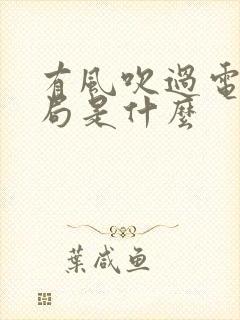 有風吹過電
局是什麼
葉咸魚